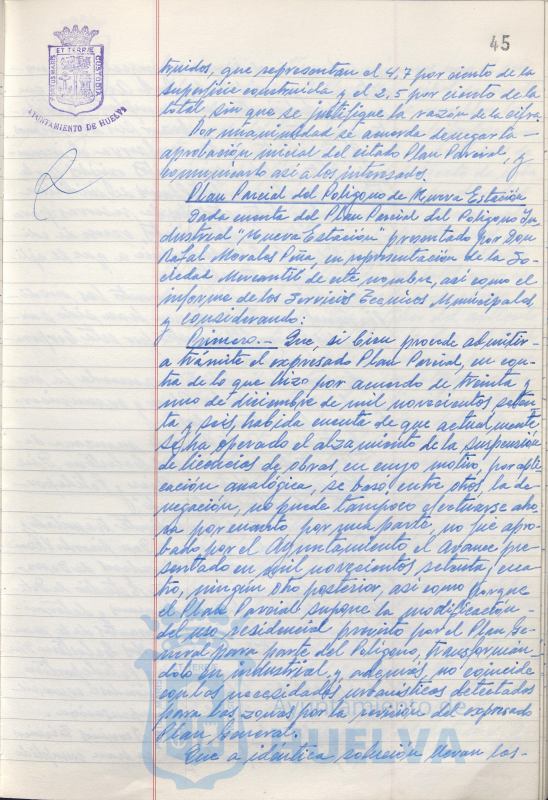 45
ET TERRÆ
PORTUS MARIS
CUSTODIA
AYUNTAMIENTO DE HUELVA
truidos, que representan el 4,7 por ciento de la
superficie construida y el 2,5 por ciento de la
total, sin que se justifique la razón de la cifra.
Por unanimidad se acuerda denegar la -
aprobación inicial del citado Plan Parcial, y
comunicarlo así a los interesados.
Plan Parcial del Polígono de Nueva Estación
Dada cuenta del Plan Parcial del Polígono In-
dustrial "Nueva Estación" presentado por Don
Rafael Morales Piña, en representación de la So-
ciedad Mercantil de este nombre, así como el
informe de los Servicios Tecnicos Municipales,
y considerando:
Primero.- Que, si bien procede admitir-
a trámite el expresado Plan Parcial, en con-
tra de lo que hizo por acuerdo de treinta y
uno de diciembre de mil novecientos seten-
ta y seis, habida cuenta de que actualmente
se ha operado el alzamiento de la suspensión
de licencias de obras, en cuyo motivo, por apli-
cación analógica, se basó, entre otros, la de-
negación, no puede tampoco efectuarse aho-
ra por cuanto por una parte, no fue apro-
bado por el Ayuntamiento el Avance pre-
sentado en mil novecientos setenta y cua-
tro, ningún otro posterior, así como porque
el Plan Parcial supone la modificación -
del uso residencial previsto por el Plan Ge-
neral para parte del Polígono, transformán-
dolo en industrial, y además, no coincide
con las necesidades urbanísticas detectadas
para las zonas por la revisión del expresado
Plan General.
Que a idéntica solución llevan las-
Ayuntamiento de
HUELVA